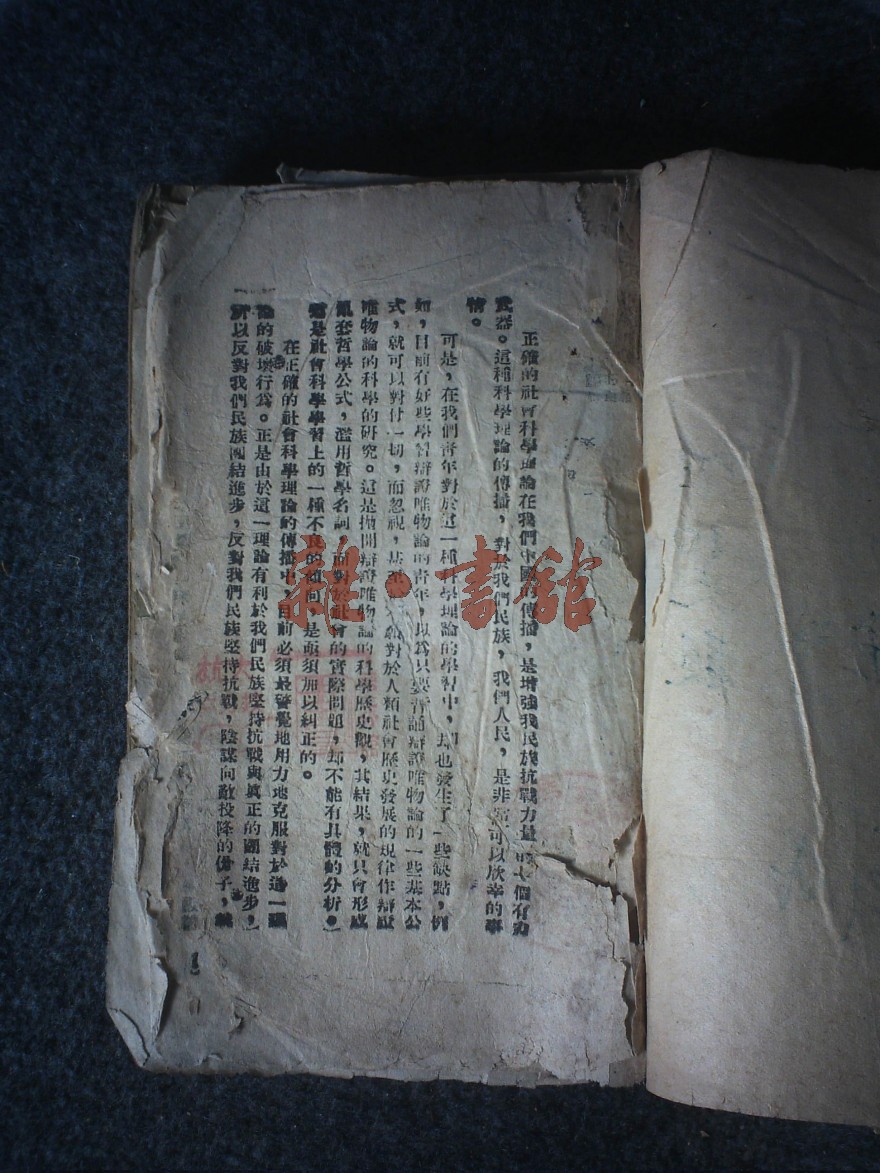 正確的社會科學理論在我們中國的傳播，是增強我民族抗戰力量的一個有力
武器。這種科學理論的傳播，對於我們民族，我們人民，是非常可以欣幸的事
情。
可是，在我們青年對於這一種科學理論的學習中，却也發生了一些缺點，例
如，目前有好些學習辯證唯物論的青年，以爲只要背誦辯證唯物論的一些基本公
式，就可以對付一切，而忽視，甚至 對於人類社會歷史發展的規律作辯證
唯物論的科學的研究。這是拋開辯證唯物論的科學歷史觀，其結果，就只會形成
亂套哲學公式，濫用哲學名詞，而對於社會的實際問題，却不能有具體的分析。
這是社會科學學習上的一種不良的傾向，是必須加以糾正的。
在正確的社會科學理論的傳播中，目前必須最警覺地用力地克服對於這一理
論的破壞行爲。正是由於這一理論有利於我們民族堅持抗戰與眞正的團結進步，
所以反對我們民族團結進步，反對我們民族堅持抗戰，陰謀向敵投降的份子，就
雜·書館